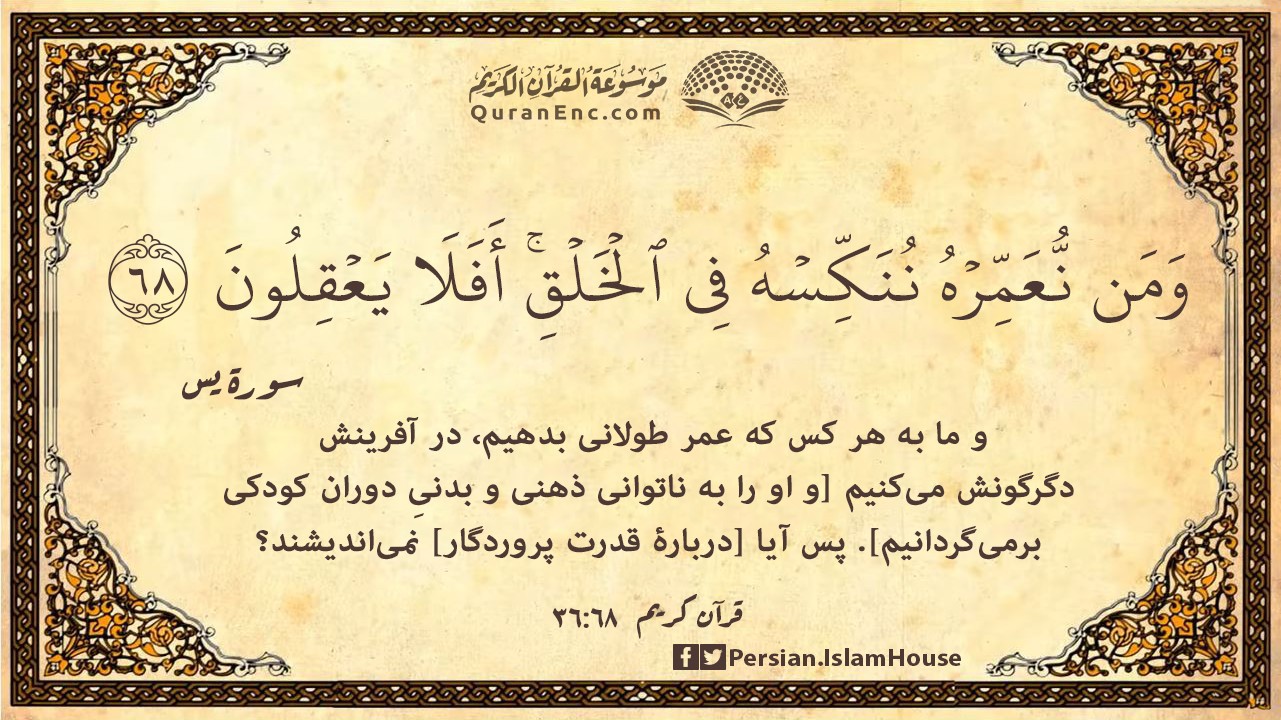 موسوعة القرآن الكريم
QuranEnc.com
وَمَن نُّعَمِّرۡهُ نُنَكِّسۡهُ فِي ٱلۡخَلۡقِۚ أَفَلَا يَعۡقِلُونَ ٦٨
سورة يس
و ما به هر کس که عمر طولانی بدهیم، در آفرینش
دگرگونش می‌کنیم [و او را به ناتوانی ذهنی و بدنیِ دوران کودکی
برمی‌گردانیم]. پس آیا [دربارهٔ قدرت پروردگار] نمی‌اندیشند؟
قرآن کریم ٣٦:٦٨
Persian.IslamHouse